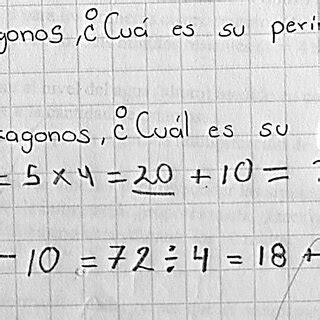 gonos, ¿Cuá es su peri
agonos, ¿Cuál es su
= 5 x 4 = 20 + 10 =
- 10 = 72 ÷ 4 = 18 +